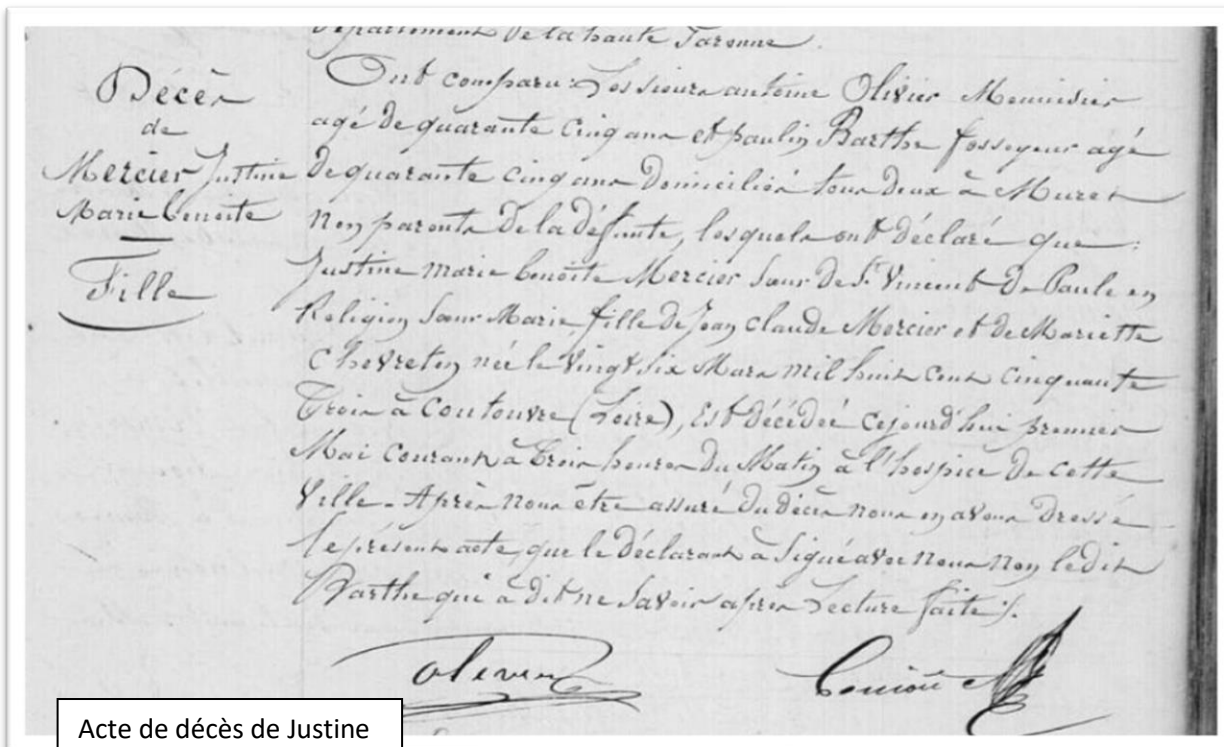 Département de la haute Garonne.
Décès
de
Mercier Justine
Marie benoite
Fille
Ont comparu: Les sieurs antoine Olivier Menuisier
agé de quarante cinq ans et paulin Barthe fossoyeur agé
de quarante cinq ans domiciliés tous deux à Muret
non parents de la défunte, lesquels ont déclaré que:
Justine marie benoite Mercier Sœur de St Vincent de Paule en
Religion Sœur Marie fille de Jean claude Mercier et de Mariette
Chevretin née le vingt six Mars mil huit cent cinquante
Trois à Coutouvre (Loire), Est décédée cejourd'hui premier
Mai courant à trois heures du Matin à l'hospice de cette
Ville - Après nous être assuré du décès nous en avons dressé
le présent acte, que le déclarant à signé avec nous non ledit
Barthe qui à dit ne savoir après Lecture faite ./.
olivier
Acte de décès de Justine